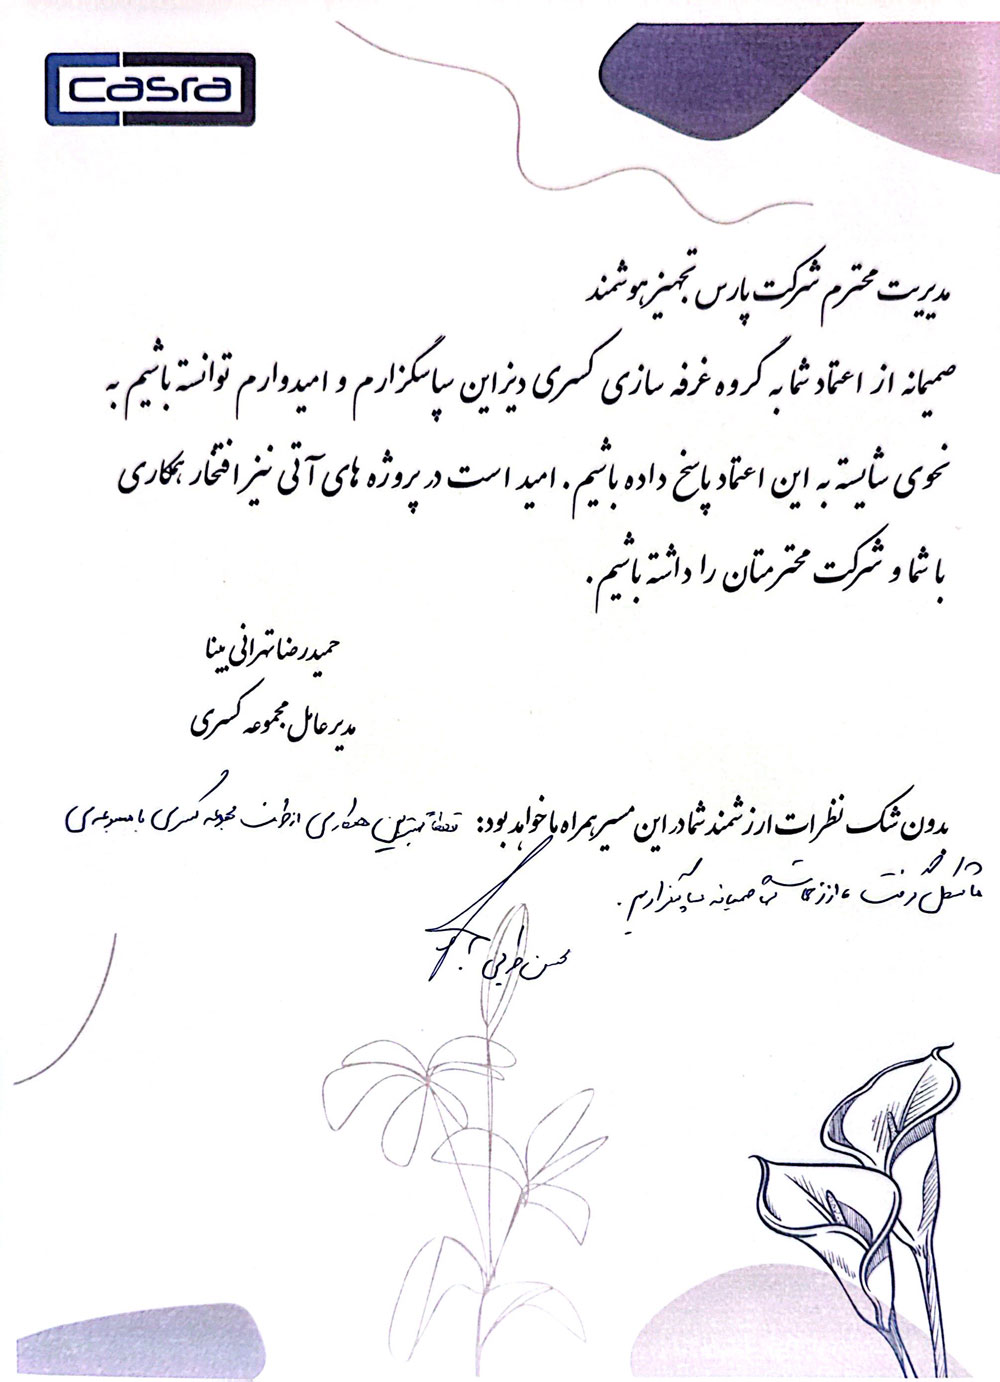 casra
مدیریت محترم شرکت پارس تجهیز هوشمند
صمیمانه از اعتماد شما به گروه غرفه سازی کسری دیزاین سپاسگزارم و امیدوارم توانسته باشیم به
نحوی شایسته به این اعتماد پاسخ داده باشیم. امید است در پروژه های آتی نیز افتخار همکاری
با شما و شرکت محترمتان را داشته باشیم.
حمیدرضا تهرانی بینا
مدیر عامل مجموعه کسری
بدون شک نظرات ارزشمند شما در این مسیر همراه ما خواهد بود: قطعاً بهترین همکاری از طرف مجموعه کسری با مجموعه‌ی
ما شکل گرفت، از زحمات شما صمیمانه سپاسگزاریم.
محسن